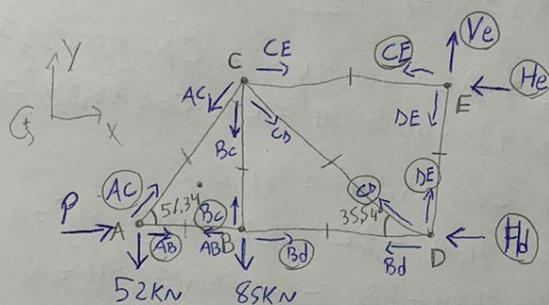 Y
X
C
CE
CE
Ve
He
E
AC
Bc
CD
DE
AC
51.34°
Bc
CD
35.54°
DE
P
A
AB
AB
B
Bd
Bd
D
Hd
52KN
85KN